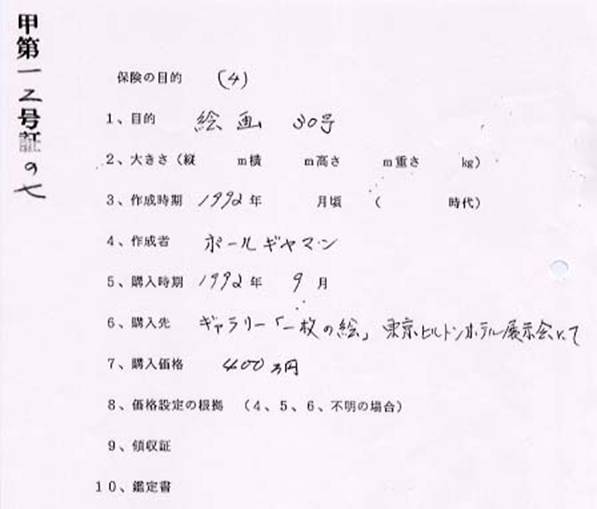 甲第一二号証の七
保険の目的 (4)
1、目的 絵画 30号
2、大きさ(縦 m横 m高さ m重さ kg)
3、作成時期 1992年 月頃 ( 時代)
4、作成者 ポールギヤマン
5、購入時期 1992年 9月
6、購入先 ギャラリー「一枚の絵」東京ヒルトンホテル展示会にて
7、購入価格 400万円
8、価格設定の根拠 (4、5、6、不明の場合)
9、領収証
10、鑑定書